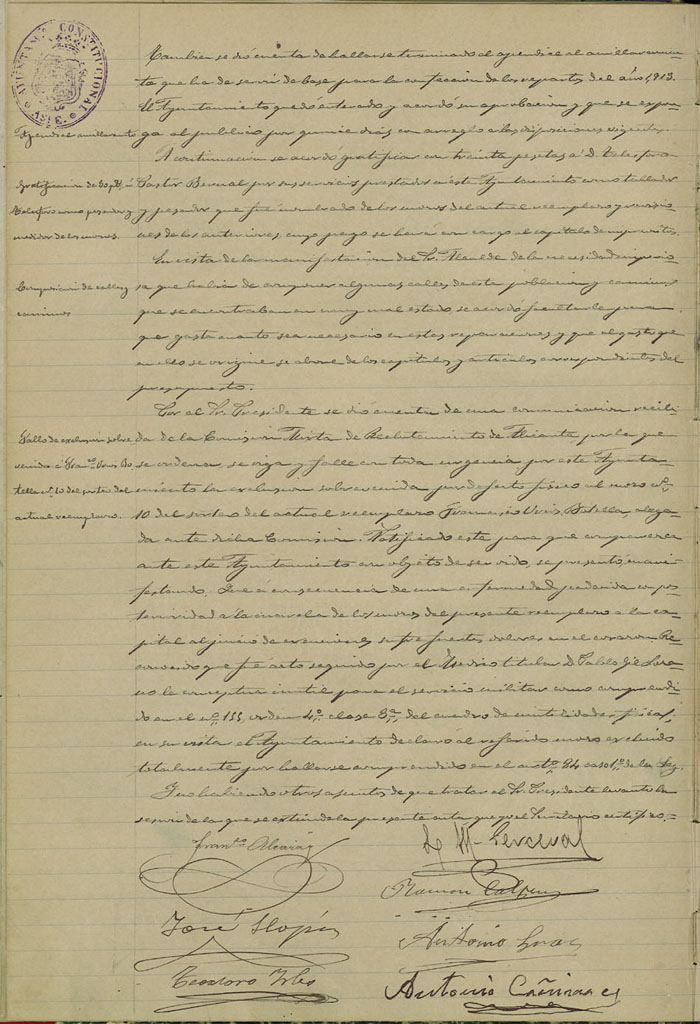 AYUNTAMº CONSTITUCIONAL
Tambien se dió cuenta de hallarse terminado el apendice al amillaramien-
to que ha de servir de base para la confeccion de los repartos del año 1,913.
El Ayuntamiento quedó enterado y acordó su aprobacion y que se expon-
Apendice amillaramiento
ga al publico por quince dias con arreglo a las disposiciones vigentes.
A continuacion se acordó gratificar con treinta pesetas á D. Telesforo
Gratificacion de 30 pts. á
Telesforo como pesador y
medidor de los mozos.
Pastor Bernal por sus servicios prestados a este Ayuntamiento como tallador
y pesador que fué nombrado de los mozos del actual reemplazo y revisio-
nes de los anteriores, cuyo pago se hará con cargo al capitulo de imprevistos.
En vista de la manifestacion del Sr. Alcalde de la necesidad imperio-
Composicion de calles y
caminos
sa que habia de componer algunas calles de esta poblacion y caminos
que se encontraban en muy mal estado se acordó facultarle para
que gaste cuanto sea necesario en estas reparaciones y que el gasto que
en ello se origine se abone de los capitulos y articulos correspondientes del
presupuesto.
Por el Sr. Presidente se dió cuenta de una comunicacion recibi-
Fallo de exclusion sobre
venida á Franco
nº 10 del sorteo del
actual reemplazo.
da de la Comision Mixta de Reclutamiento de Alicante por la que
se ordena, se oiga y falle con toda urgencia por este Ayunta-
miento la exclusion sobrevenida por defecto fisico al mozo nº
10 del sorteo del actual reemplazo Francisco Botella, alega-
da ante dicha Comision. Notificado este para que comparezca
ante este Ayuntamiento con objeto de ser oido, se presentó mani-
festando, Que á consecuencia de una enfermedad padecida con pos-
terioridad a la marcha de los mozos del presente reemplazo a la ca-
pital al juicio de exenciones sufre fuertes dolores en el corazon. Re-
conocido que fué acto seguido por el Medico titular D. Pablo Gil
lo conceptua inutil para el servicio militar como comprendi-
do en el nº 155, orden 4º clase 3ª, del cuadro de inutilidades fisicas,
en su vista el Ayuntamiento declaró al referido mozo excluido
totalmente por hallarse comprendido en el artº 84 caso 1º de la Ley.
Y no habiendo otros asuntos de que tratar el Sr. Presidente levantó la
sesion de la que se extiende la presente acta que yo el Secretario certifico.
Franco Alcaraz
L. M. Perceval
Ramon
José Llopis
Antonio
Teodoro
Antonio Cañizares